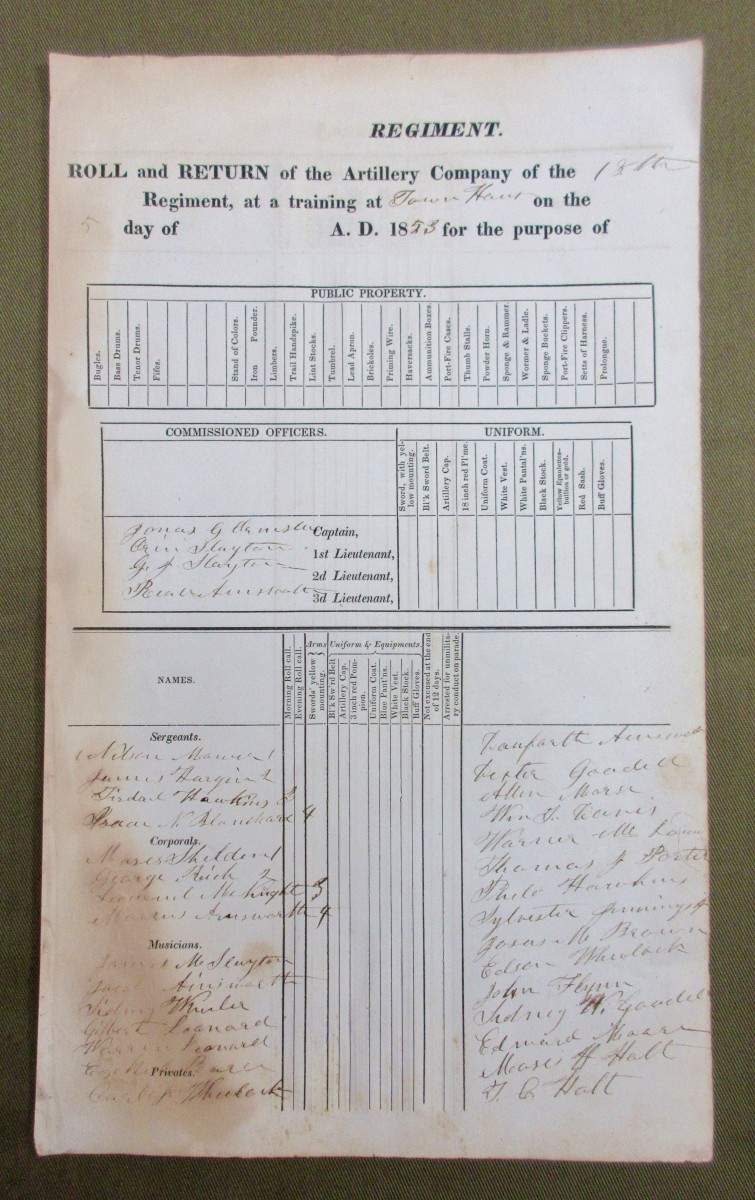 REGIMENT.
ROLL and RETURN of the Artillery Company of the 18th
Regiment, at a training at Town House on the
5 day of A. D. 1853 for the purpose of
PUBLIC PROPERTY.
Bugles.
Bass Drums.
Tenor Drums.
Fifes.
Stand of Colors.
Iron Pounder.
Limbers.
Trail Handspike.
Lint Stocks.
Tumbrel.
Lead Apron.
Brickoles.
Priming Wire.
Haversacks.
Ammunition Boxes.
Port-Fire Cases.
Thumb Stalls.
Powder Horn.
Sponge & Rammer.
Wormer & Ladle.
Sponge Buckets.
Port-Fire Clippers.
Setts of Harness.
Prolongue.
COMMISSIONED OFFICERS.
UNIFORM.
Sword, with yellow mounting.
Bl'k Sword Belt.
Artillery Cap.
18 inch red Pl'me.
Uniform Coat.
White Vest.
White Pantal'ns.
Black Stock.
Yellow Epaulettes—bullion or gold.
Red Sash.
Buff Gloves.
Jonas G Ormsby Captain,
Orin Slayton 1st Lieutenant,
G. J. Slayton 2d Lieutenant,
Ainsworth 3d Lieutenant,
NAMES.
Morning Roll call.
Evening Roll call.
Arms
Swords' yellow mounting.
Uniform & Equipments.
Bl'k Sw'rd Belt
Artillery Cap.
3 inch red Pompion.
Uniform Coat.
Blue Pant'ns.
White Vest.
Black Stock.
Buff Gloves.
Not excused at the end of 12 days.
Arrested for unmilitary conduct on parade.
Sergeants.
1
James 2
Hawkins 3
Isaac N. Blanchard 4
Corporals.
Moses Sheldon 1
George Rich 2
Leonard McKnight 3
Marcus Ainsworth 4
Musicians.
James M Slayton
Ainsworth
Sidney Wheeler
Gilbert Leonard
Warren Leonard
Privates.
Wheelock
Danforth Ainsworth
Lester Goodell
Allen Morse
Wm. T. Davis
Warner Mc
Thomas J Porter
Philo Hawkins
Sylvester Jennings
Josas M. Brown
Edson Wheelock
John Flynn
Sidney H. Goodell
Edward Moore
Moses H Holt
T. C Holt